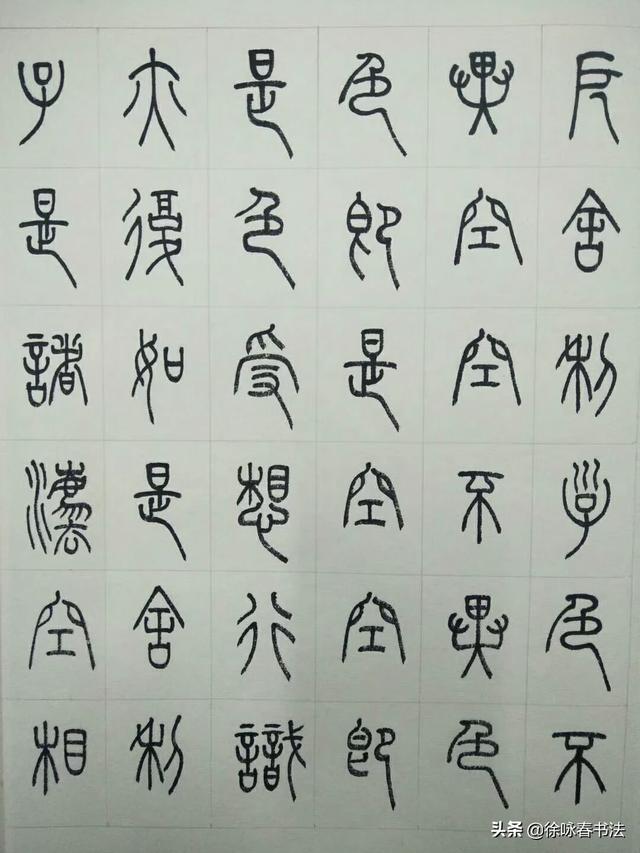 厄舍利子色不
異空空不異色
色即是空空即
是色受想行識
亦復如是舍利
子是諸灋空相
头条 @徐咏春书法